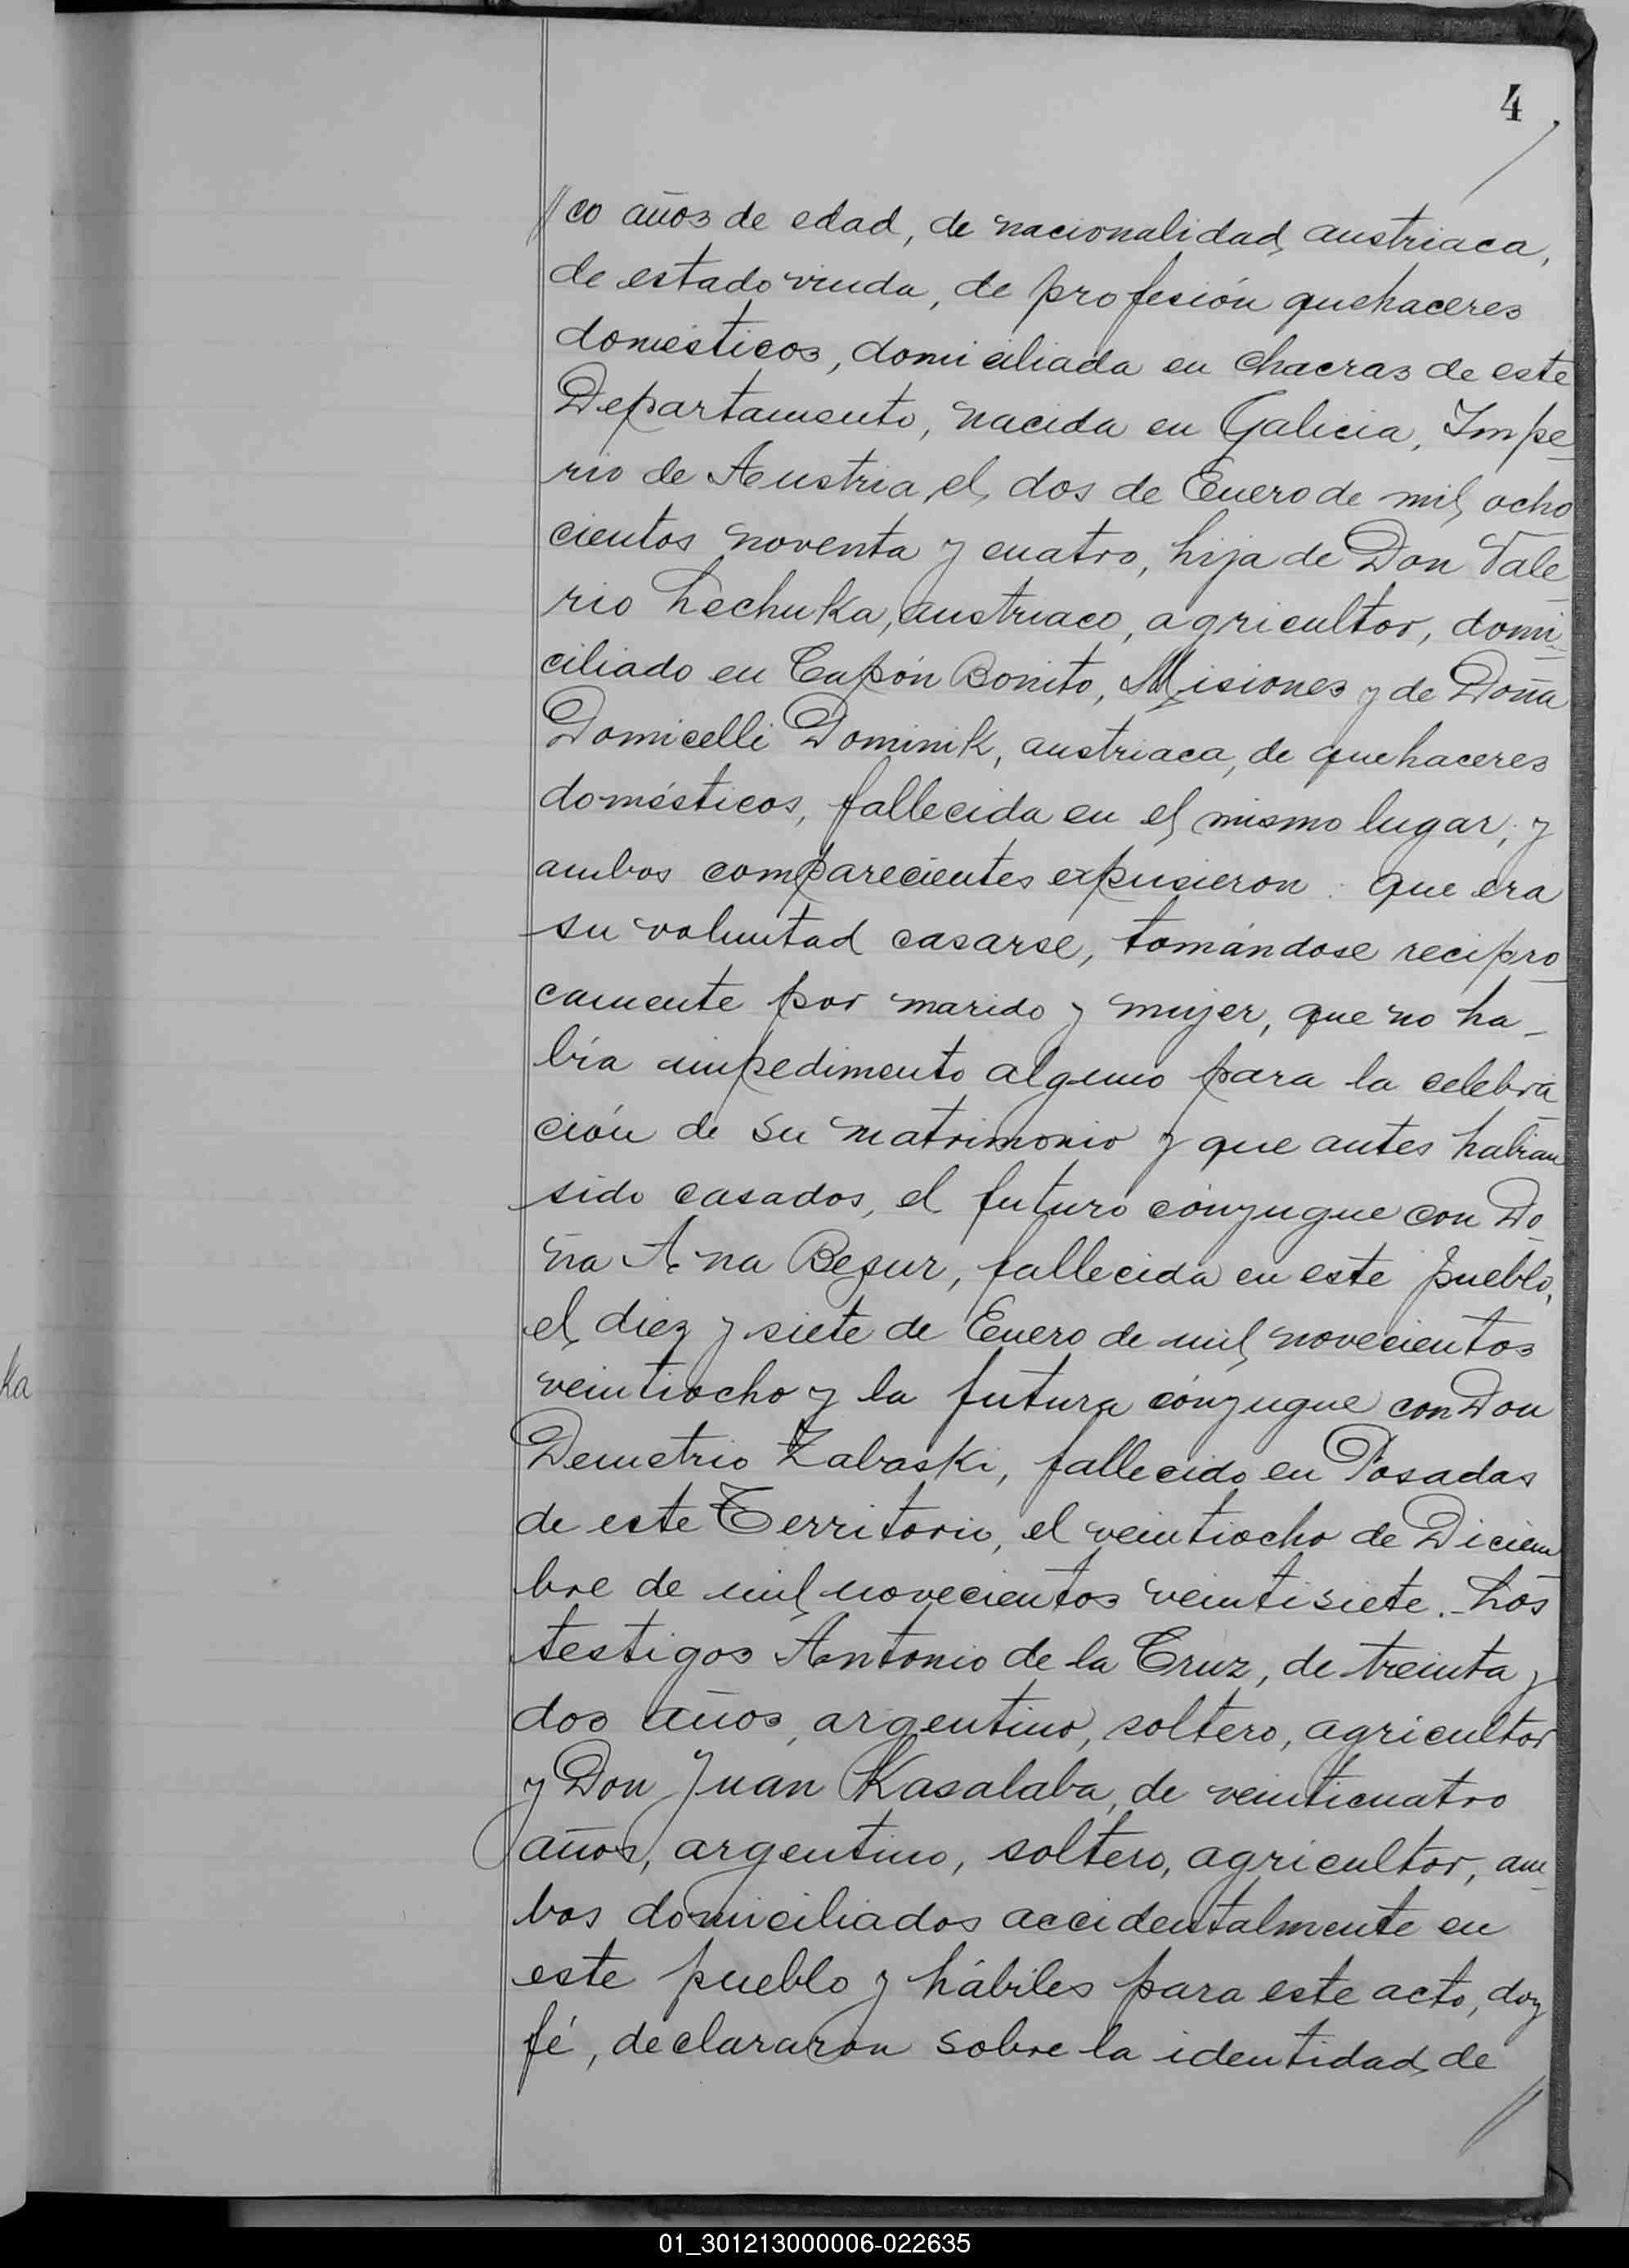 4
//co años de edad, de nacionalidad austriaca,
de estado viuda, de profesión quehaceres
domésticos, domiciliada en Chacras de este
Departamento, nacida en Galicia, Impe-
rio de Austria, el dos de Enero de mil ocho
cientos noventa y cuatro, hija de Don Vale-
rio Lechuka, austriaco, agricultor, domi-
ciliado en Capón Bonito, Misiones y de Doña
Domicelli Dominik, austriaca, de quehaceres
domésticos, fallecida en el mismo lugar; y
ambos comparecientes expusieron: que era
su voluntad casarse, tomándose recipro-
camente por marido y mujer, que no ha-
bía impedimento alguno para la celebra-
ción de su matrimonio y que antes habían
sido casados, el futuro cónyugue con Do-
ña Ana Begur, fallecida en este pueblo,
el diez y siete de Enero de mil novecientos
veintiocho y la futura cónyugue con Don
Demetrio Zabaski, fallecido en Posadas
de este Territorio, el veintiocho de Diciem
bre de mil novecientos veintisiete.- Los
testigos Antonio de la Cruz, de treinta y
dos años, argentino, soltero, agricultor
y Don Juan Kasalaba, de veinticuatro
años, argentino, soltero, agricultor, am-
bos domiciliados accidentalmente en
este pueblo y hábiles para este acto, doy
fé, declararon sobre la identidad de
//
ka
01_301213000006-022635